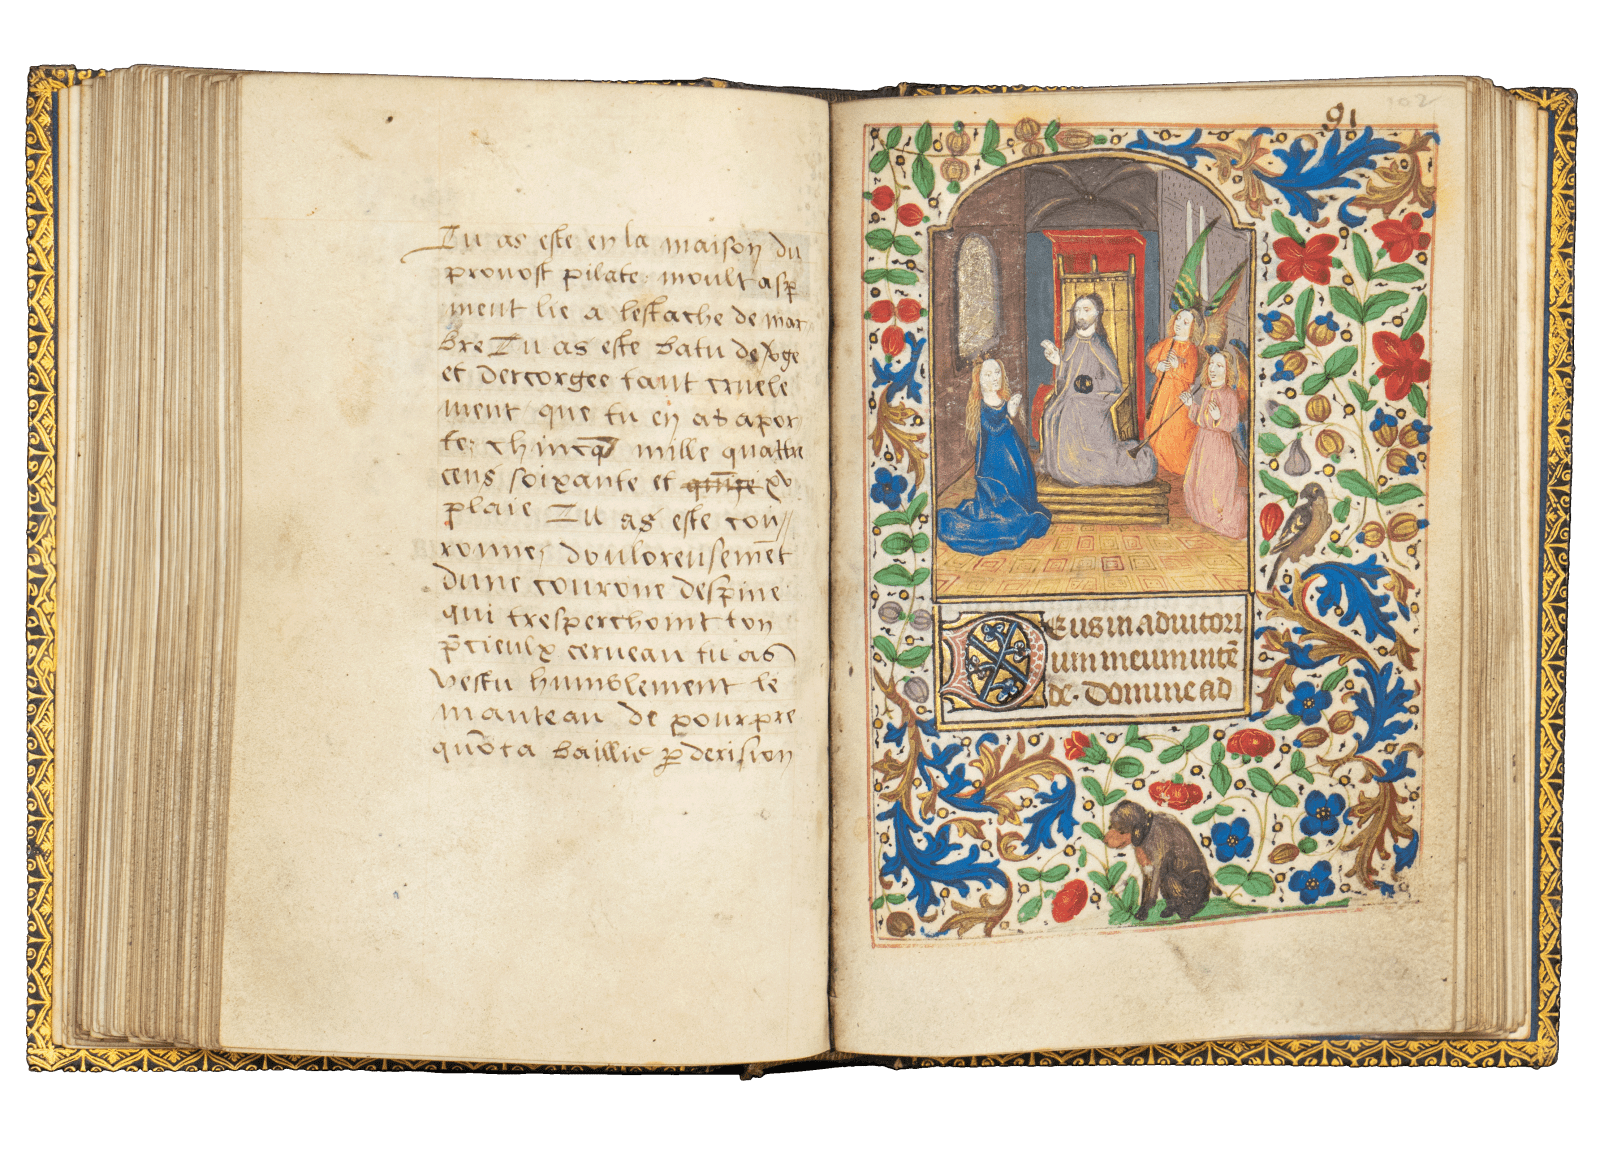 Tu as este en la maison du
prouost pilate moult asp̱
ment lie a lestache de mar
bre Tu as este batu de v̾ge
et descorgee tant cruele
ment que tu en as apor
te chincq̄ mille quattre
cens soixante et xv
plaie Tu as este cou//
ronne douloreusemēt
dune courone despine
qui tresperchoint ton
p̄cieulx cerueau tu as
vestu humblement le
manteau de pourpre
quō ta baillie p̱ derision
102
91
Deus in adiutori
um meum intē
de. Domine ad